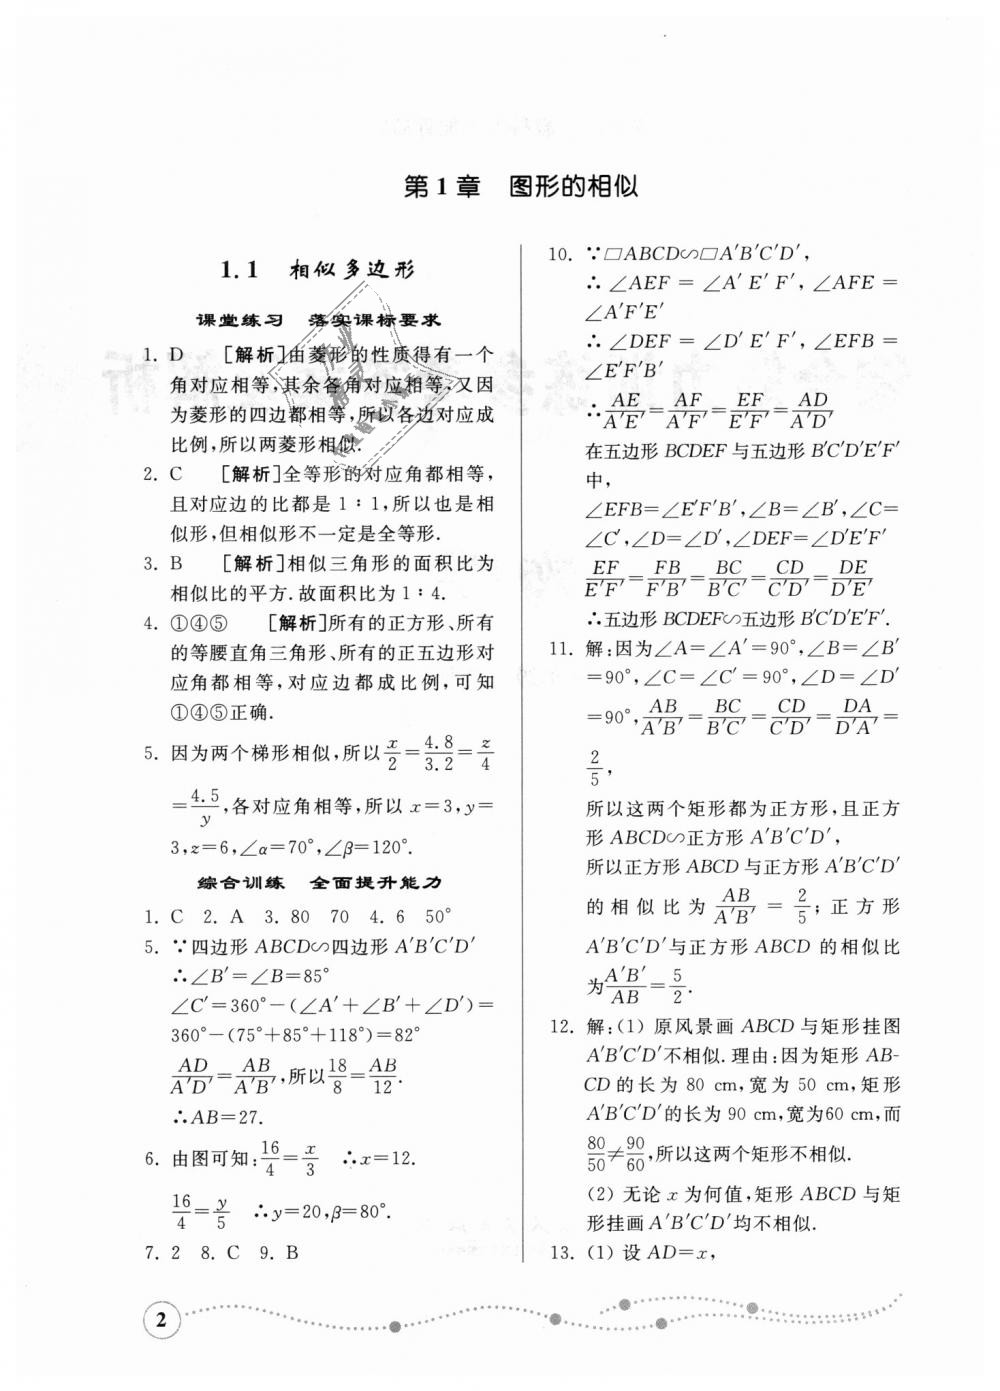 第1章 图形的相似
1.1 相似多边形
课堂练习 落实课标要求
1. D [解析]由菱形的性质得有一个
角对应相等,其余各角对应相等,又因
为菱形的四边都相等,所以各边对应成
比例,所以两菱形相似.
2. C [解析]全等形的对应角都相等,
且对应边的比都是1∶1,所以也是相
似形,但相似形不一定是全等形.
3. B [解析]相似三角形的面积比为
相似比的平方.故面积比为1∶4.
4. ①④⑤ [解析]所有的正方形、所有
的等腰直角三角形、所有的正五边形对
应角都相等,对应边都成比例,可知
①④⑤正确.
5. 因为两个梯形相似,所以x/2=4.8/3.2=z/4
=4.5/y,各对应角相等,所以x=3,y=
3,z=6,∠α=70°,∠β=120°.
综合训练 全面提升能力
1. C 2. A 3. 80 70 4. 6 50°
5. ∵四边形ABCD∽四边形A′B′C′D′
∴∠B′=∠B=85°
∠C′=360°-(∠A′+∠B′+∠D′)=
360°-(75°+85°+118°)=82°
AD/A′D′=AB/A′B′,所以18/8=AB/12.
∴AB=27.
6. 由图可知:16/4=x/3 ∴x=12.
16/4=y/5 ∴y=20,β=80°.
7. 2 8. C 9. B
10. ∵□ABCD∽□A′B′C′D′,
∴∠AEF=∠A′E′F′,∠AFE=
∠A′F′E′
∴∠DEF=∠D′E′F′,∠EFB=
∠E′F′B′
∴AE/A′E′=AF/A′F′=EF/E′F′=AD/A′D′
在五边形BCDEF与五边形B′C′D′E′F′
中,
∠EFB=∠E′F′B′,∠B=∠B′,∠C=
∠C′,∠D=∠D′,∠DEF=∠D′E′F′
EF/E′F′=FB/F′B′=BC/B′C′=CD/C′D′=DE/D′E′
∴五边形BCDEF∽五边形B′C′D′E′F′.
11. 解:因为∠A=∠A′=90°,∠B=∠B′
=90°,∠C=∠C′=90°,∠D=∠D′
=90°,AB/A′B′=BC/B′C′=CD/C′D′=DA/D′A′=
2/5,
所以这两个矩形都为正方形,且正方
形ABCD∽正方形A′B′C′D′,
所以正方形ABCD与正方形A′B′C′D′
的相似比为AB/A′B′=2/5;正方形
A′B′C′D′与正方形ABCD的相似比
为A′B′/AB=5/2.
12. 解:(1)原风景画ABCD与矩形挂图
A′B′C′D′不相似.理由:因为矩形AB-
CD的长为80 cm,宽为50 cm,矩形
A′B′C′D′的长为90 cm,宽为60 cm,而
80/50≠90/60,所以这两个矩形不相似.
(2)无论x为何值,矩形ABCD与矩
形挂画A′B′C′D′均不相似.
13. (1)设AD=x,
2